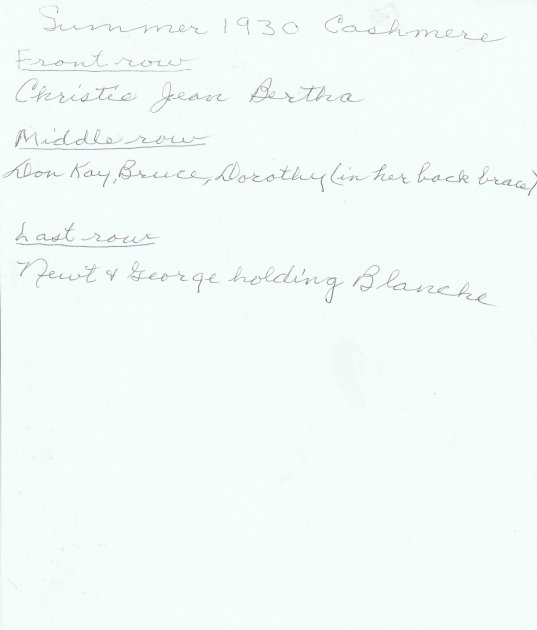 Summer 1930 Cashmere
Front row
Christie Jean Bertha
Middle row
Don Kay, Bruce, Dorothy (in her back brace)
Last row
Newt & George holding Blanche